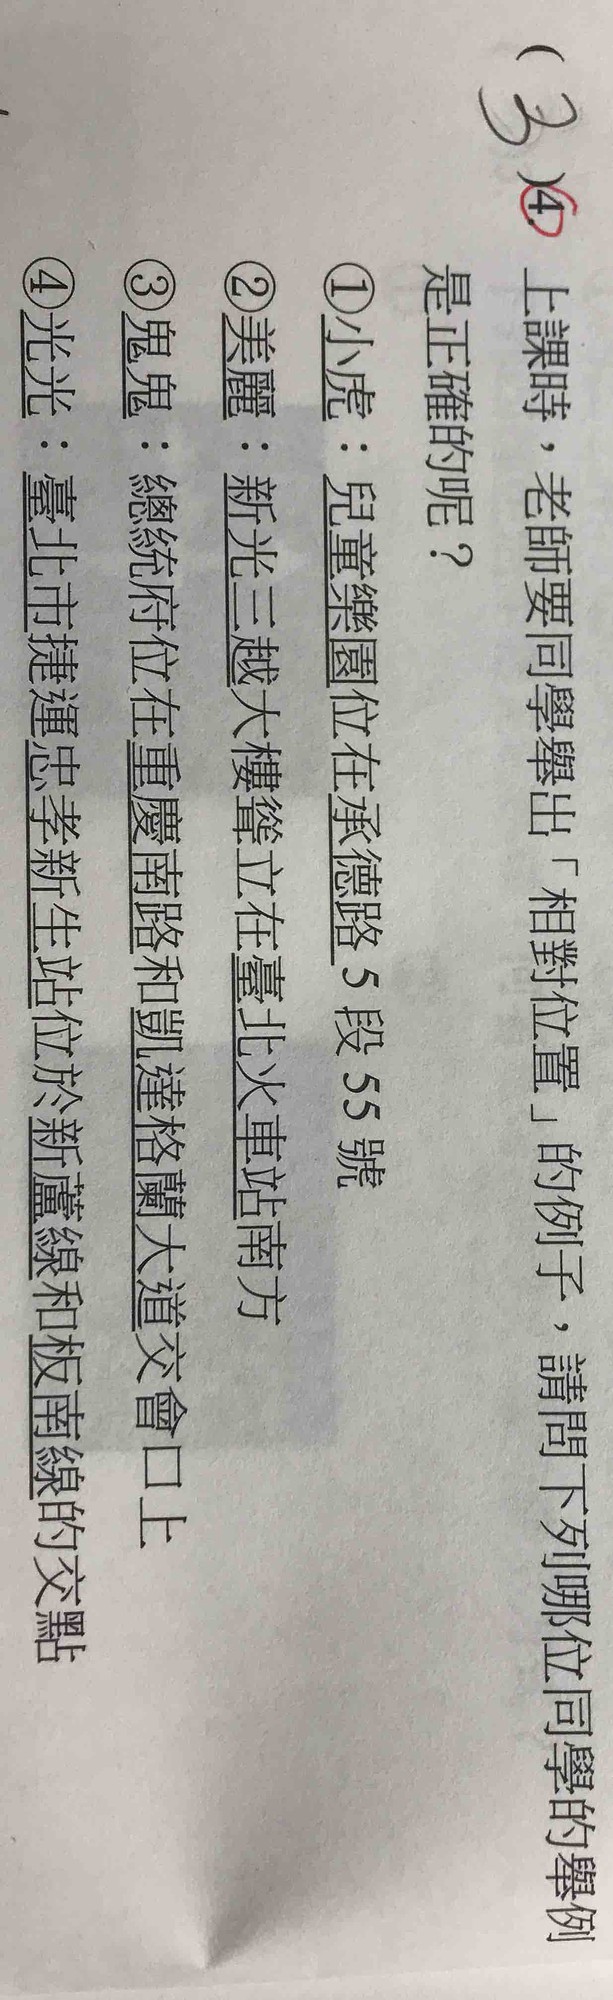 (3)4. 上課時，老師要同學舉出「相對位置」的例子，請問下列哪位同學的舉例
是正確的呢？
①小虎：兒童樂園位在承德路5段55號
②美麗：新光三越大樓聳立在臺北火車站南方
③鬼鬼：總統府位在重慶南路和凱達格蘭大道交會口上
④光光：臺北市捷運忠孝新生站位於新蘆線和板南線的交點